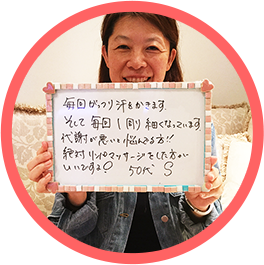 毎回がっつり汗をかきます
そして毎回1周り細くなっています
代謝が悪いと悩んでる方!!
絶対リンパマッサージをした方が
いいですよ
50代 S